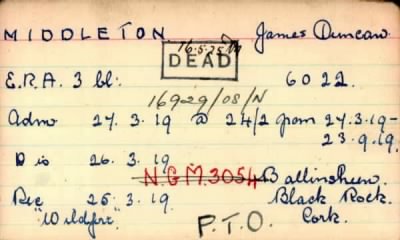 MIDDLETON James Duncan.
16.5.25
DEAD
E.R.A. 3 bl: 6022.
16929/08/N
Adm 27. 3. 19 @ 24/2 from 27.3.19-
23.9.19.
Dis 26. 3. 19
N.G M.3054 Ballinsheen.
Rec 25. 3. 19. Black Rock.
"Wildfire". P.T.O. Cork.